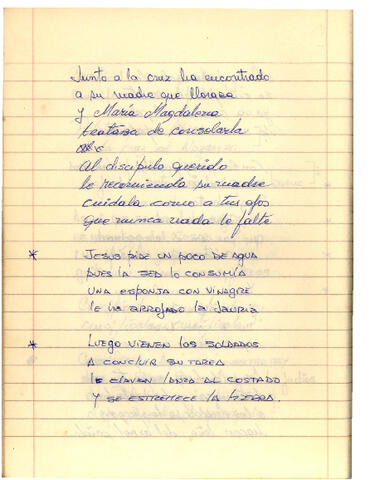 Junto a la cruz ha encontrado
a su madre que lloraba
y María Magdalena
trataba de consolarla
Al discípulo querido
le recomienda su madre
cuidala como a tus ojos
que nunca nada le falte
* JESUS PIDE UN POCO DE AGUA
PUES LA SED LO CONSUMÍA
UNA ESPONJA CON VINAGRE
LE HA ARROJADO LA JAURIA
* LUEGO VIENEN LOS SOLDADOS
A CONCLUIR SU TAREA
LE CLAVAN LANZA AL COSTADO
Y SE ESTREMECE LA TIERRA